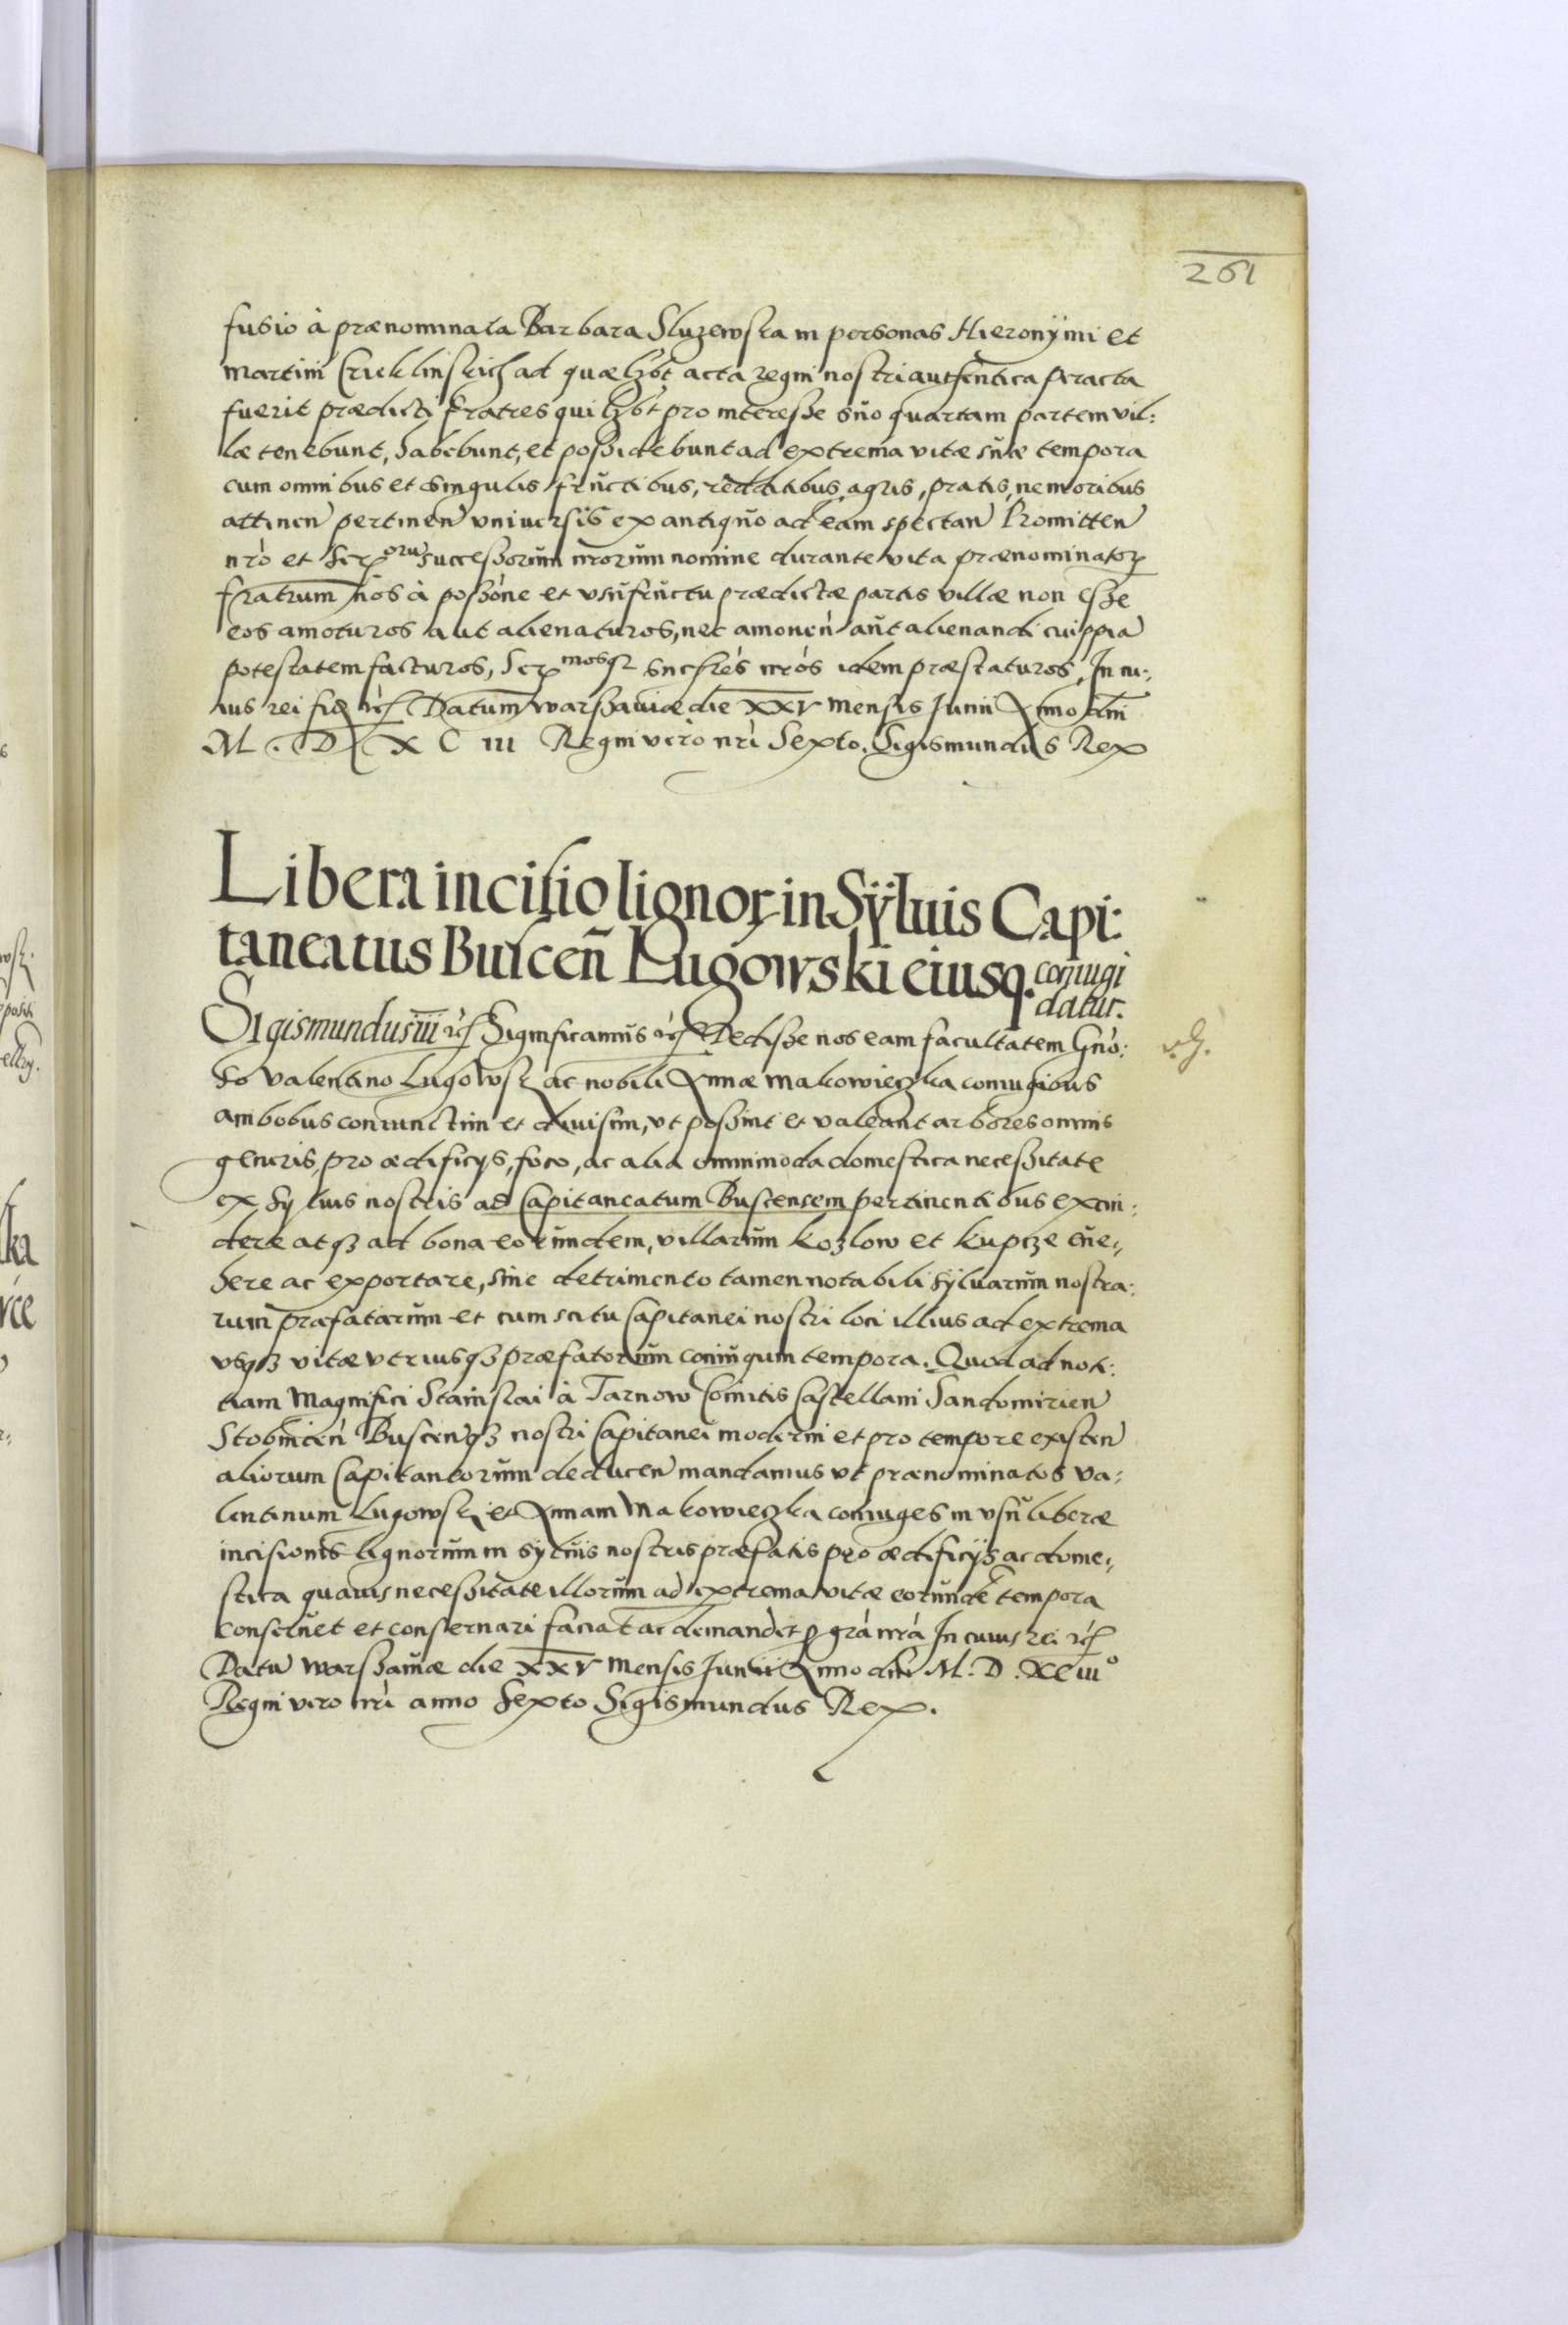 261
fusio à prænominata Barbara Sluzewska in personas Hieronÿmi et
Martini Cricklinskich ad quæ hbt acta regni nostri authentica peracta
fuerit prædicti fratres quilibt pro interesse suo quartam partem vil:
læ tenebunt, habebunt, et possidebunt ad extrema vitæ suæ tempora
cum omnibus et singulis fructibus, redditibus, agris, pratis, nemoribus
attinen pertinen vniuersis ex antiquo ad eam spectan Promitten
nrõ et Ser orũ successorum nrorum nomine durante vita prænominator
fratrum nos à possone et vsufructu prædictæ partis villæ non esse
eos amoturos aut alienaturos, nec amouen aut alienandi cuippia
potestatem facturos, Ser mosqꝫ succres nros idem præstaturos. In cu:
ius rei fid etc Datum warssauiæ die XXV mensis Junii Anno dni
M. D. X C III Regni vero nri Sexto. Sigismundus Rex
Libera incisio lignor in Sÿluis Capi:
taneatus Buscen Lugowski eiusq. coniugi
datur.
Sigismundus III etc Significamus etc Dedisse nos eam facultatem Gnõ:
so Valentino Lugowsk ac nobili Annæ Makowieczka coniugibus
ambobus coniunctim et diuisim, vt possint et valeant arbores omnis
generis, pro ædificijs, foco, ac alia omnimoda domestica necessitate
ex syluis nostris ad Capitaneatum Buscensem pertinentibus excin:
dere atqꝫ ad bona eorundem, villarum Kozlow et Kupcze eue:
here ac exportare, sine detrimento tamen notabili syluarum nostra:
rum præfatarum et cum scitu Capitanei nostri loci illius ad extrema
vsqꝫ vitæ vtriusqꝫ præfatorum coniugum tempora. Quod ad noti:
tiam Magnifici Stanislai à Tarnow Comitis Castellani Sandomirien
Stobnicen Buscenqꝫ nostri Capitanei moderni et pro tempore existen
aliorum Capitaneorum deducen mandamus vt prænominatos Va:
lentinum Lugowsk et Annam Makowieczka coniuges in vsu liberæ
incisionis lignorum in syluis nostris præfatis pro ædificijs ac dome:
stica quauis necessitate illorum ad extrema vitæ eorunde tempora
conseruet et conseruari faciat ac demandet p gra nra In cuius rei etc
Datu warssauiæ die XXV mensis Junii Anno dni M. D. XCIII°
Regni vero nri anno Sexto Sigismundus Rex.